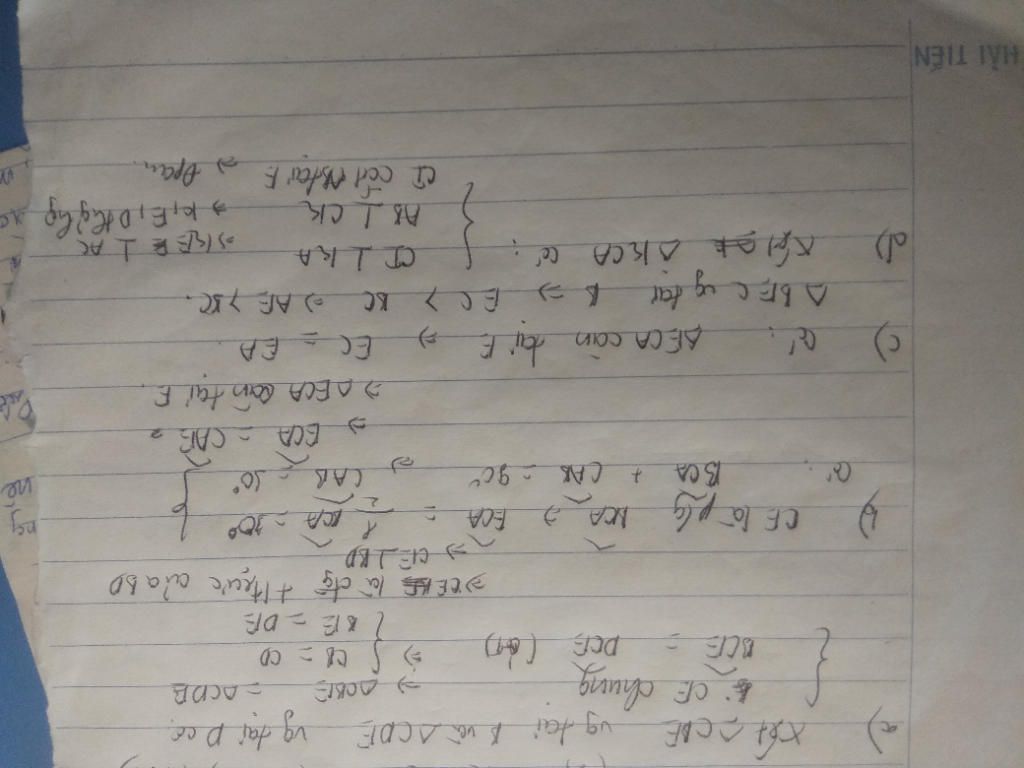 HẢI TIẾN
a) Xét △CBE vg tại B và △CDE vg tại D có:
CE chung ⇒ △CBE = △CDE
BCE = DCE ⇒ { CB = CD
BE = DE
⇒ CE là đg trực của BD
⇒ CE ⊥ BD
b) CE là pg BCA ⇒ ECA = 1/2 BCA = 30°
Có: BCA + CAB = 90° ⇒ CAB = 30°
⇒ ECA = CAE
⇒ △ECA cân tại E.
c) Có: △ECA cân tại E ⇒ EC = EA
△BEC vg tại B ⇒ EC > BC ⇒ AE > BC.
d) Xét △KCA có: { CI ⊥ KA ⇒ KE ⊥ AC
AB ⊥ CK ⇒ K, E, D thg hg
CI cắt AB tại E ⇒ Đpcm.